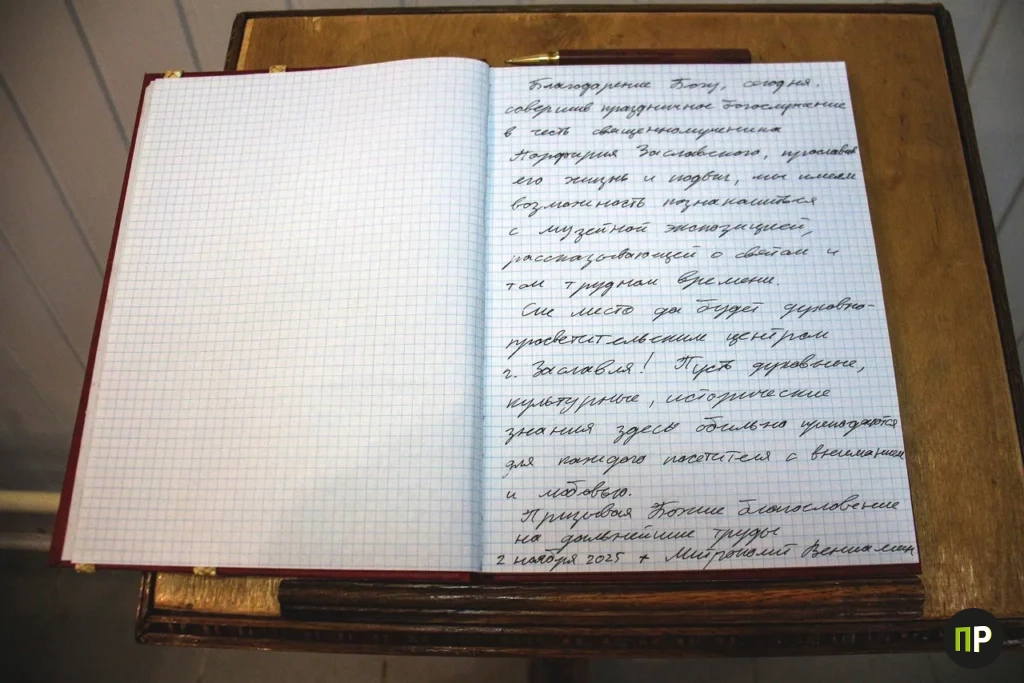 Благодарение Богу, сегодня,
совершив праздничное богослужение
в честь священномученика
Порфирия Заславского, прославив
его жизнь и подвиг, мы имеем
возможность познакомиться
с музейной экспозицией,
рассказывающей о святом и
том трудном времени.
Сие место да будет духовно-
просветительским центром
г. Заславля! Пусть духовные,
культурные, исторические
знания здесь обильно преподаются
для каждого посетителя с вниманием
и любовью.
Призывая Божие благословение
на дальнейшие труды
2 ноября 2025 + Митрополит Вениамин
ПР